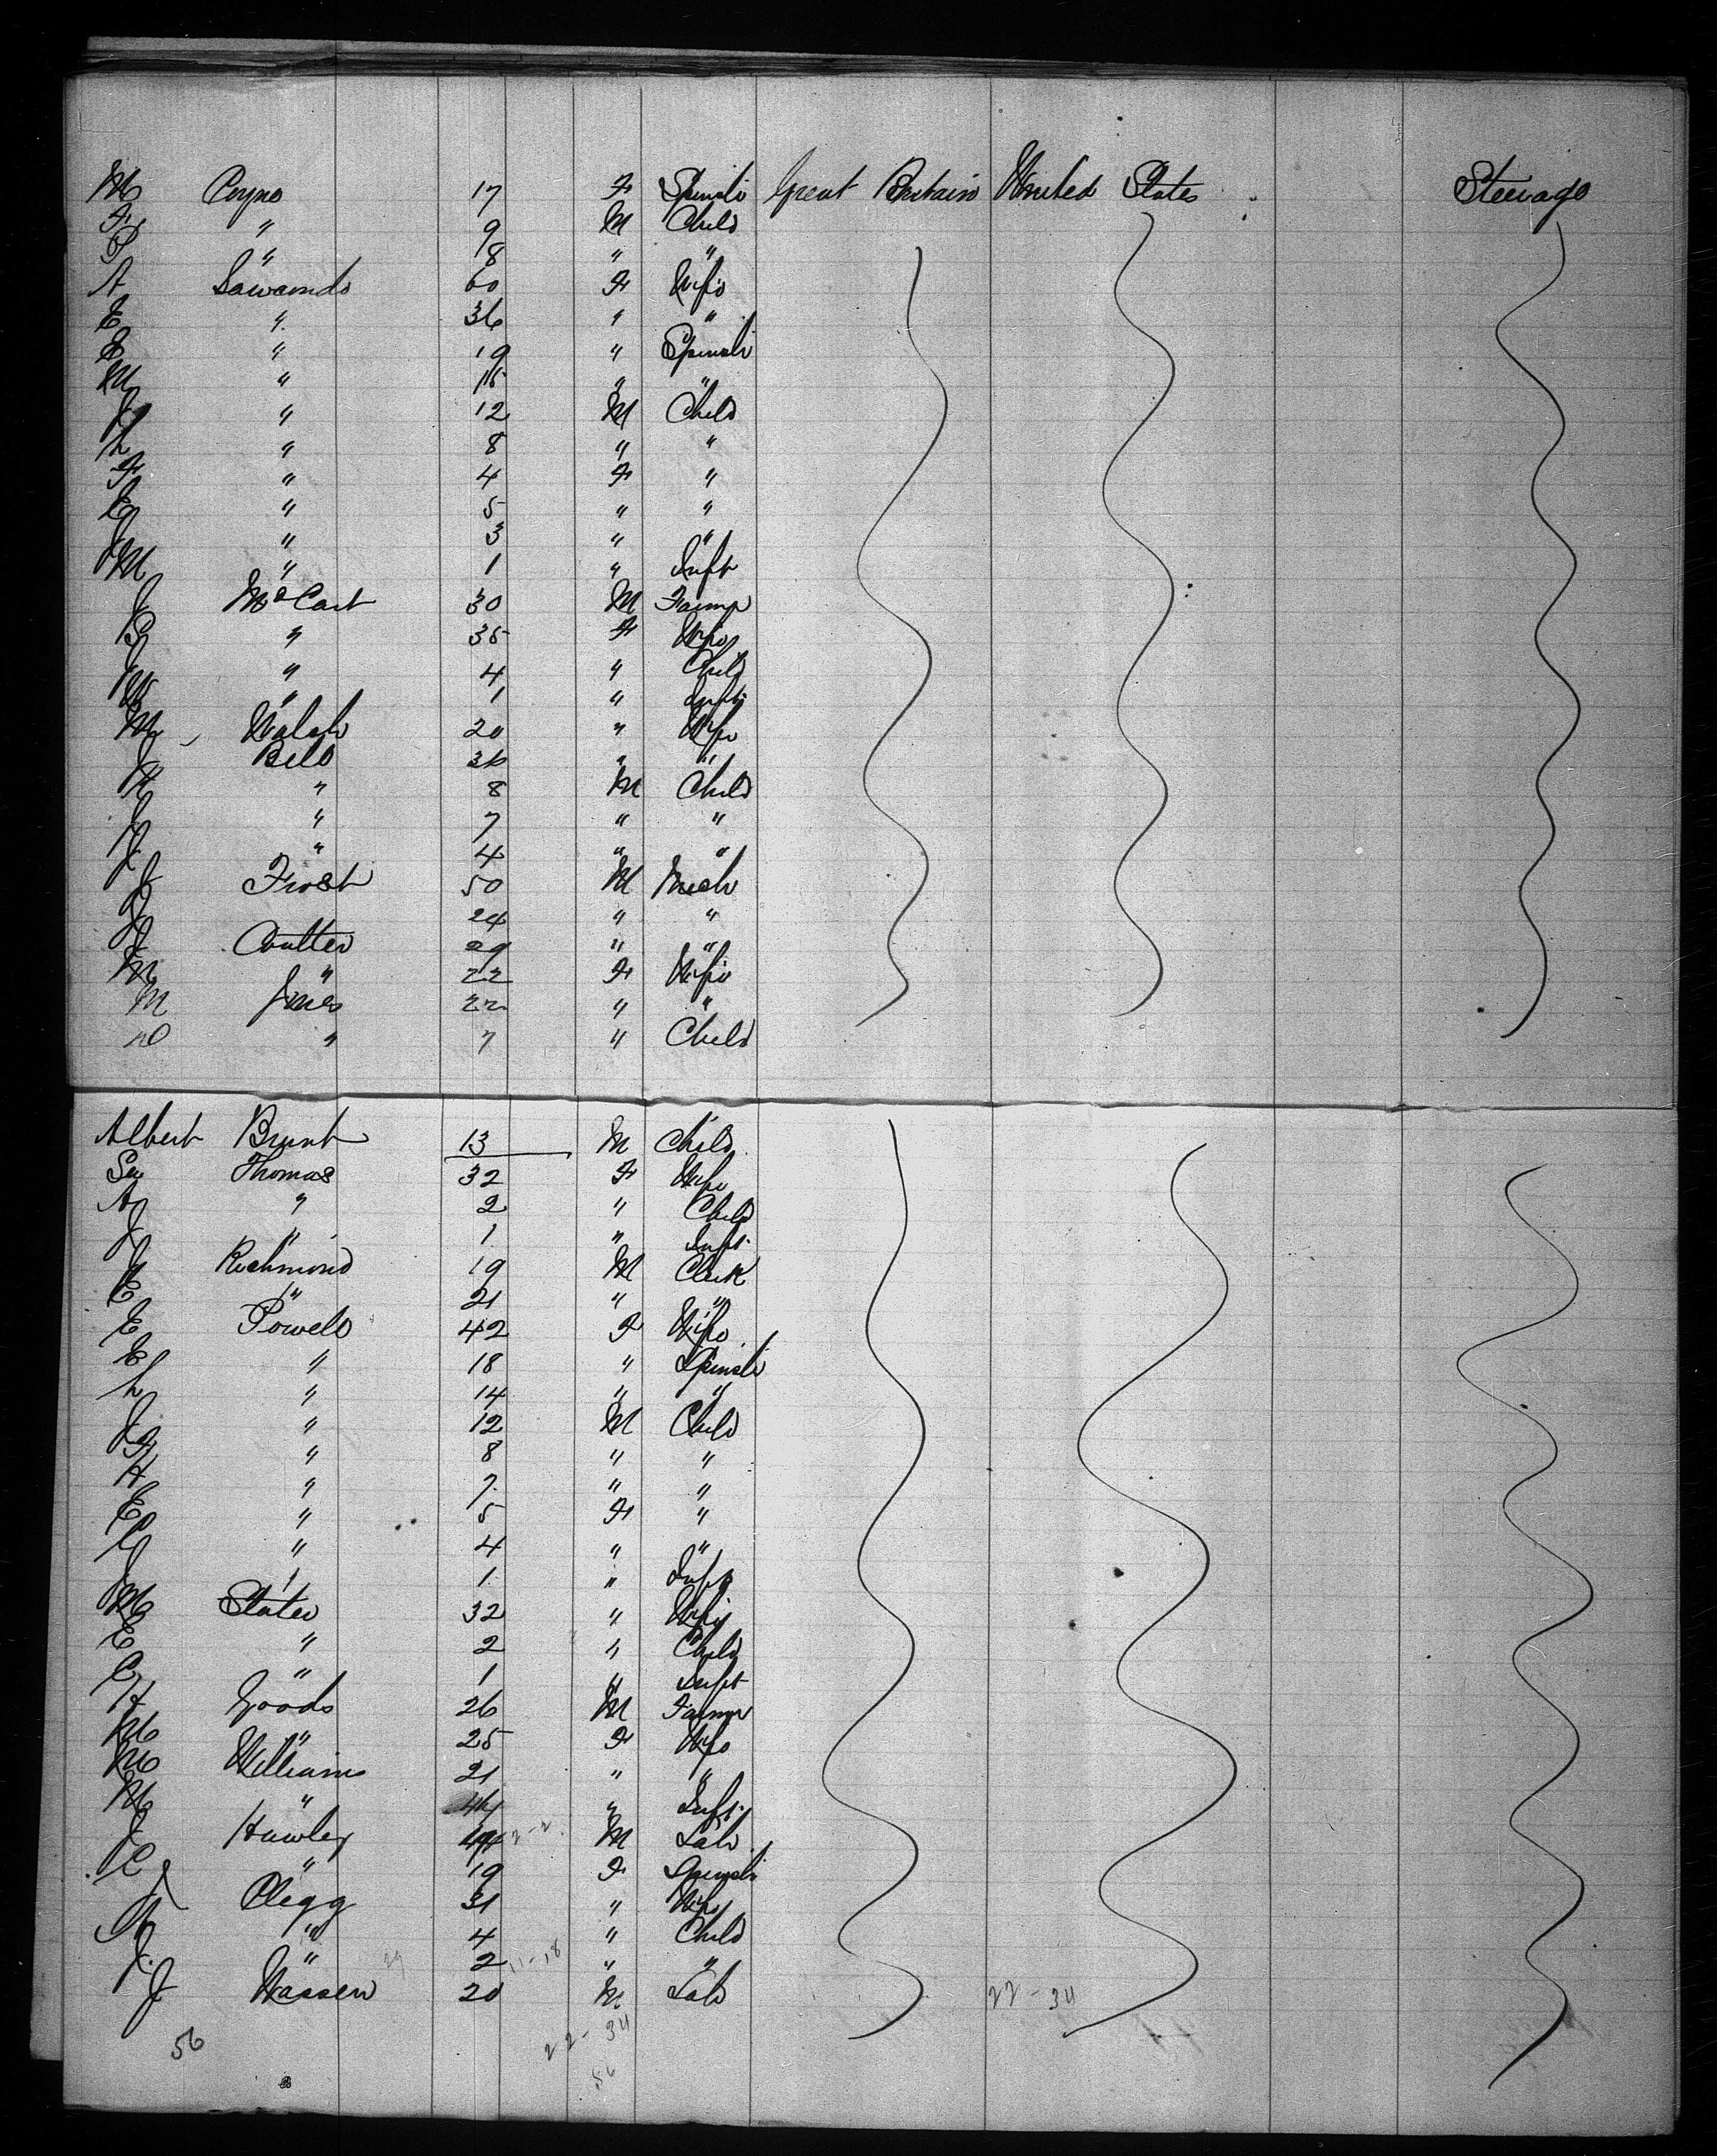 M Coyne 17 F Spinstr Great Britain United States Steerage
F " 9 M Child
P " 8 " "
A 60 F Wife
E " 36 " "
E " 19 " Spinstr
M " 15 " "
J " 12 M Child
L " 8 " "
F " 4 F "
E " 5 " "
J " 3 " "
M " 1 " Inft
J McCart 30 M Farmr
S " 35 F Wife
J " 4 " Child
M " 1 " Inft
M Walsh 20 " Wife
J Bell 36 " "
H " 8 M Child
J " 7 " "
J " 4 " "
J Frost 50 M Mech
J 24 " "
J Coulter 29 " "
M " 22 F Wife
M Jones 22 " "
" 7 " Child
Albert Brunt 13 M Child
Thomas 32 F Wife
A " 2 " Child
J " 1 " Inft
J Richmond 19 M Clerk
E " 21 " "
E Powell 42 F Wife
E " 18 " Spinstr
L " 14 " "
J " 12 M Child
F " 8 " "
H " 7 " "
E " 5 F "
C " 4 " "
J " 1 " Inft
M Slater 32 " Wife
E " 2 " Child
C " 1 " Inft
H Goods 26 M Farmr
M " 25 F Wife
M Williams 21 " "
M " " Inft
J Hawley M Lab
C " 19 F Spinstr
J Clegg 31 " Wife
A " 4 " Child
J " 2 11-18 " "
J Wassen 20 M Lab 22-34
56 22-34
56